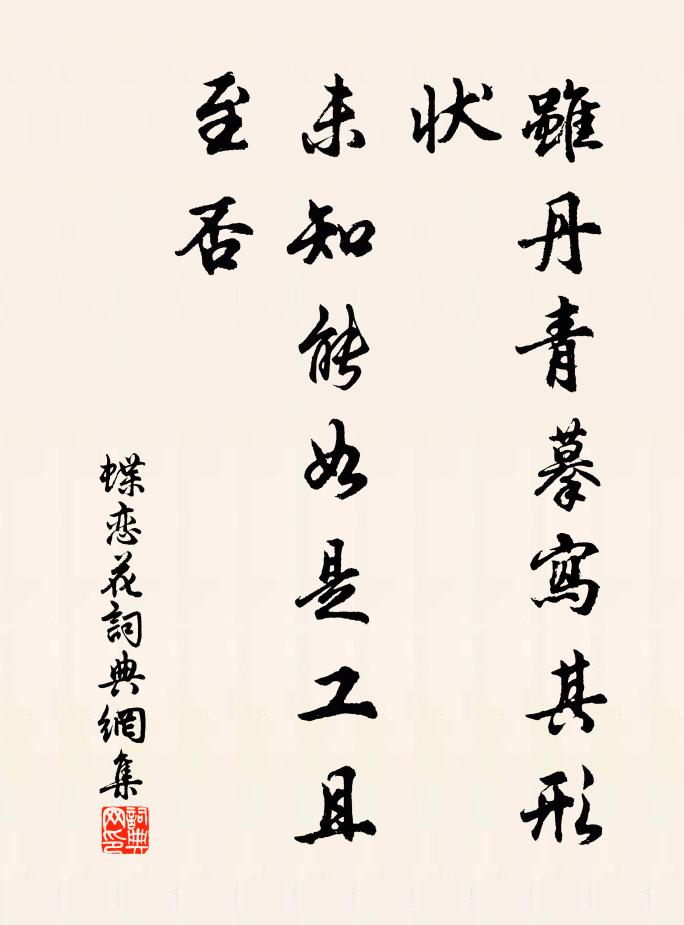 雖丹青摹寫其形
状
未知能如是工且
至否
蝶恋花詞典網集
詞典
网印